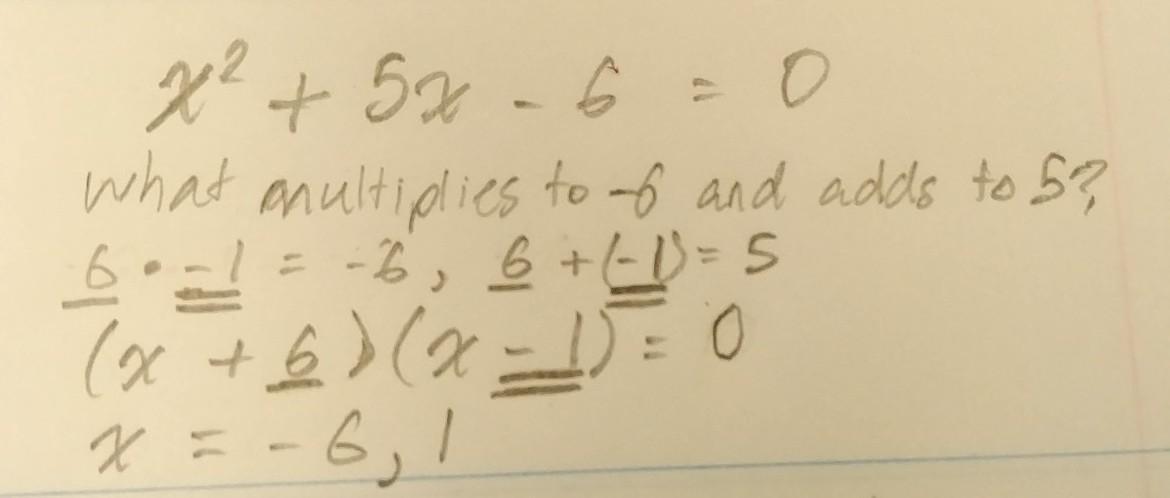 x² + 5x - 6 = 0
what multiplies to -6 and adds to 5?
6 · -1 = -6, 6 + (-1) = 5
(x + 6)(x - 1) = 0
x = -6, 1